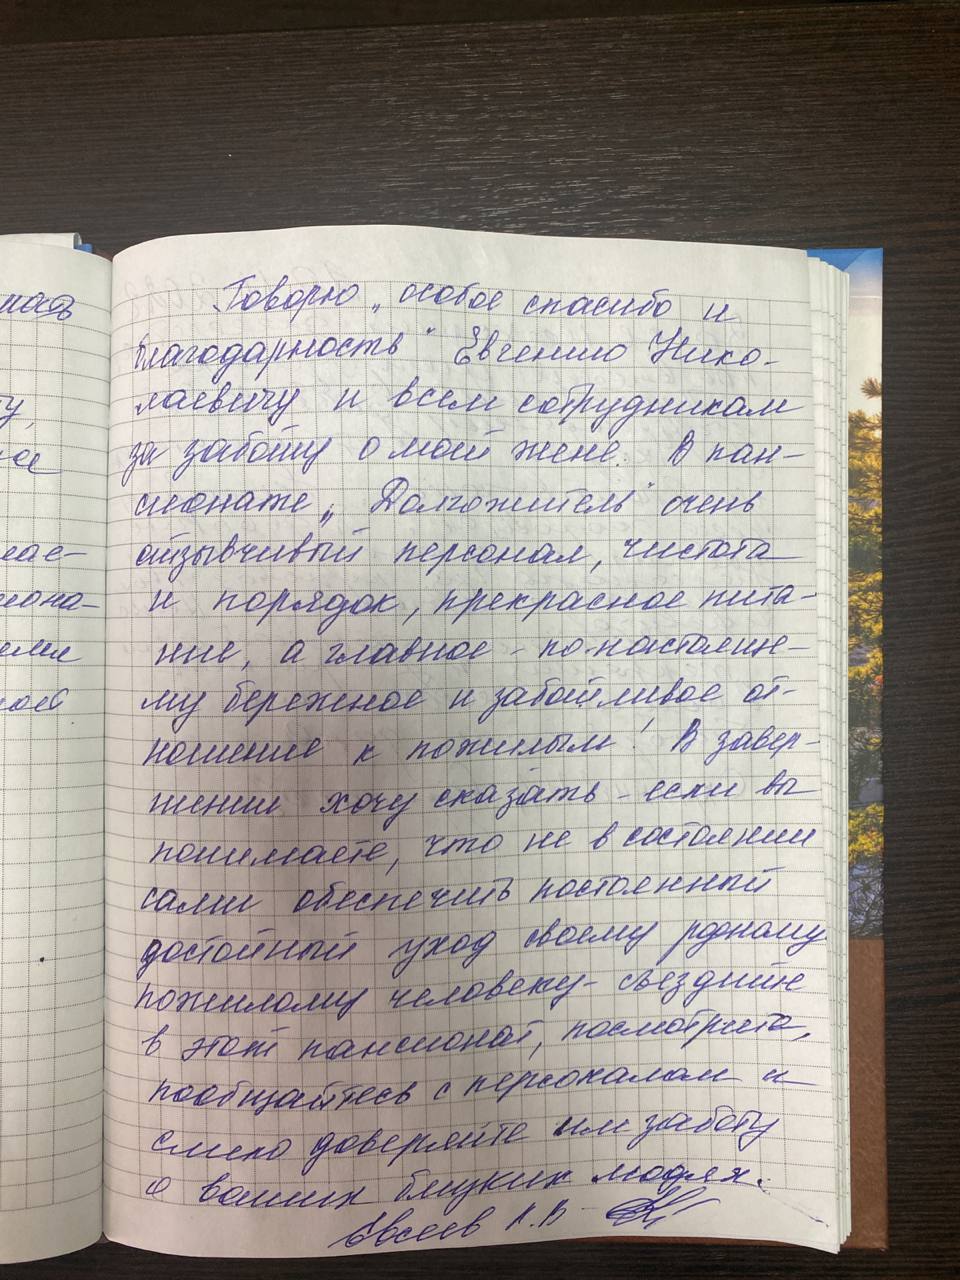 Говорю „особое спасибо и
благодарность" Евгению Нико-
лаевичу и всем сотрудникам
за заботу о моей жене. В пан-
сионате „Долгожитель" очень
отзывчивый персонал, чистота
и порядок, прекрасное пита-
ние, а главное - по-настоящ-
му бережное и заботливое от-
ношение к пожилым! В завер-
шении хочу сказать - если вы
понимаете, что не в состоянии
сами обеспечить постоянный
достойный уход своему родному
пожилому человеку - съездите
в этот пансионат, посмотрите,
пообщайтесь с персоналом и
смело доверяйте им заботу
о ваших близких людях.
Евсеев А.В